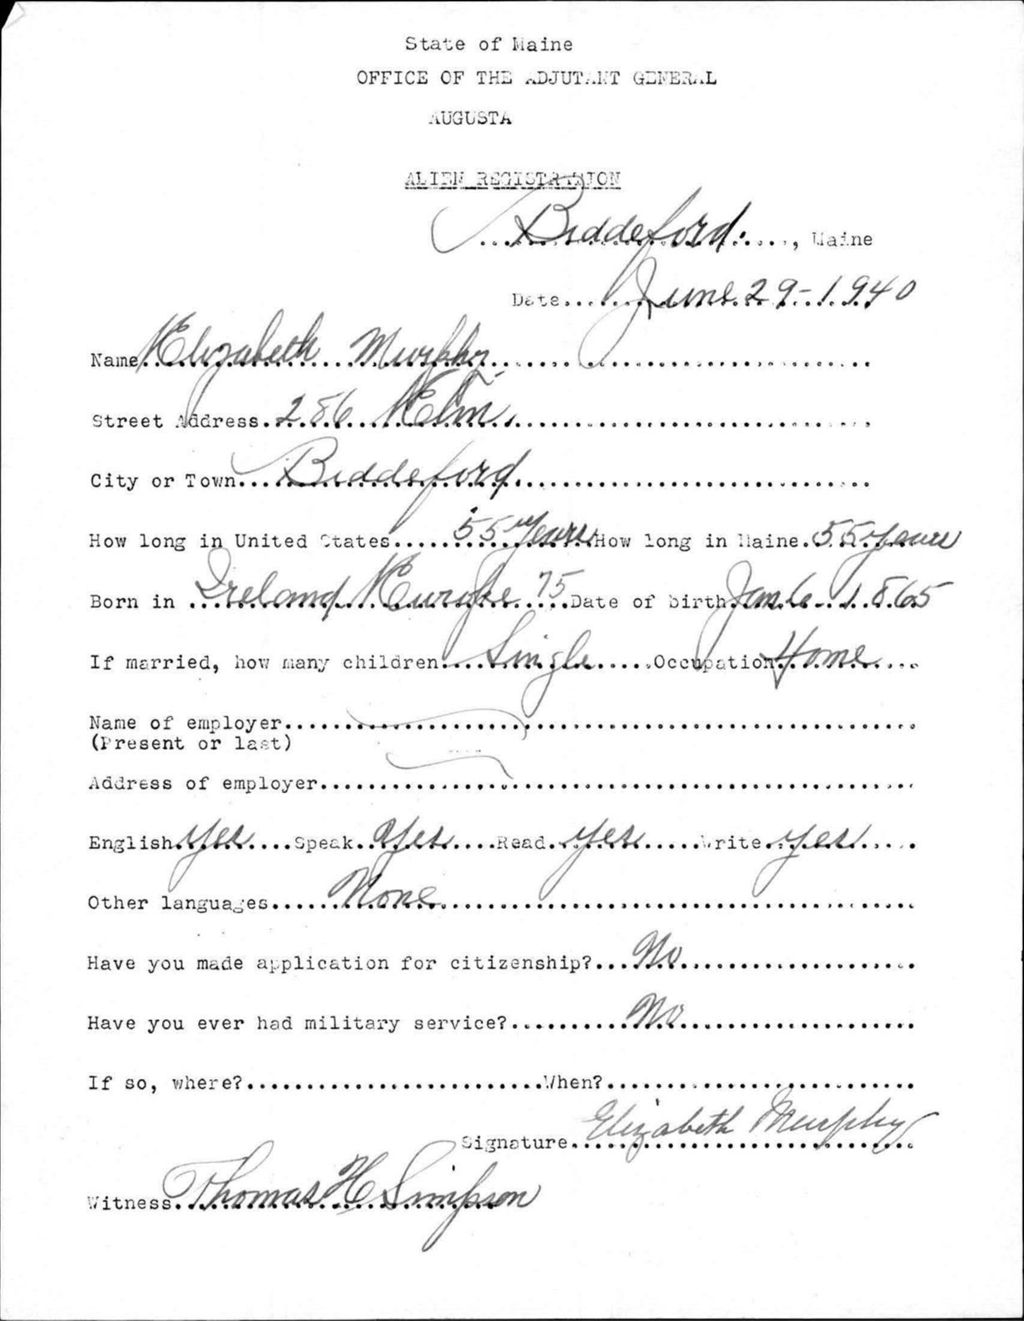 State of Maine
OFFICE OF THE ADJUTANT GENERAL
AUGUSTA
ALIEN REGISTRATION
Biddeford, Maine
Date June 29-1940
Name Elizabeth Murphy
Street Address 286 Elm
City or Town Biddeford
How long in United States 55 years How long in Maine 55 years
Born in Ireland 75 Date of birth Jan 6 1865
If married, how many children Single Occupation Home
Name of employer
(Present or last)
Address of employer
English yes Speak yes Read yes Write yes
Other languages None
Have you made application for citizenship? No
Have you ever had military service? No
If so, where? When?
Signature Elizabeth Murphy
Witness Thomas H Simpson